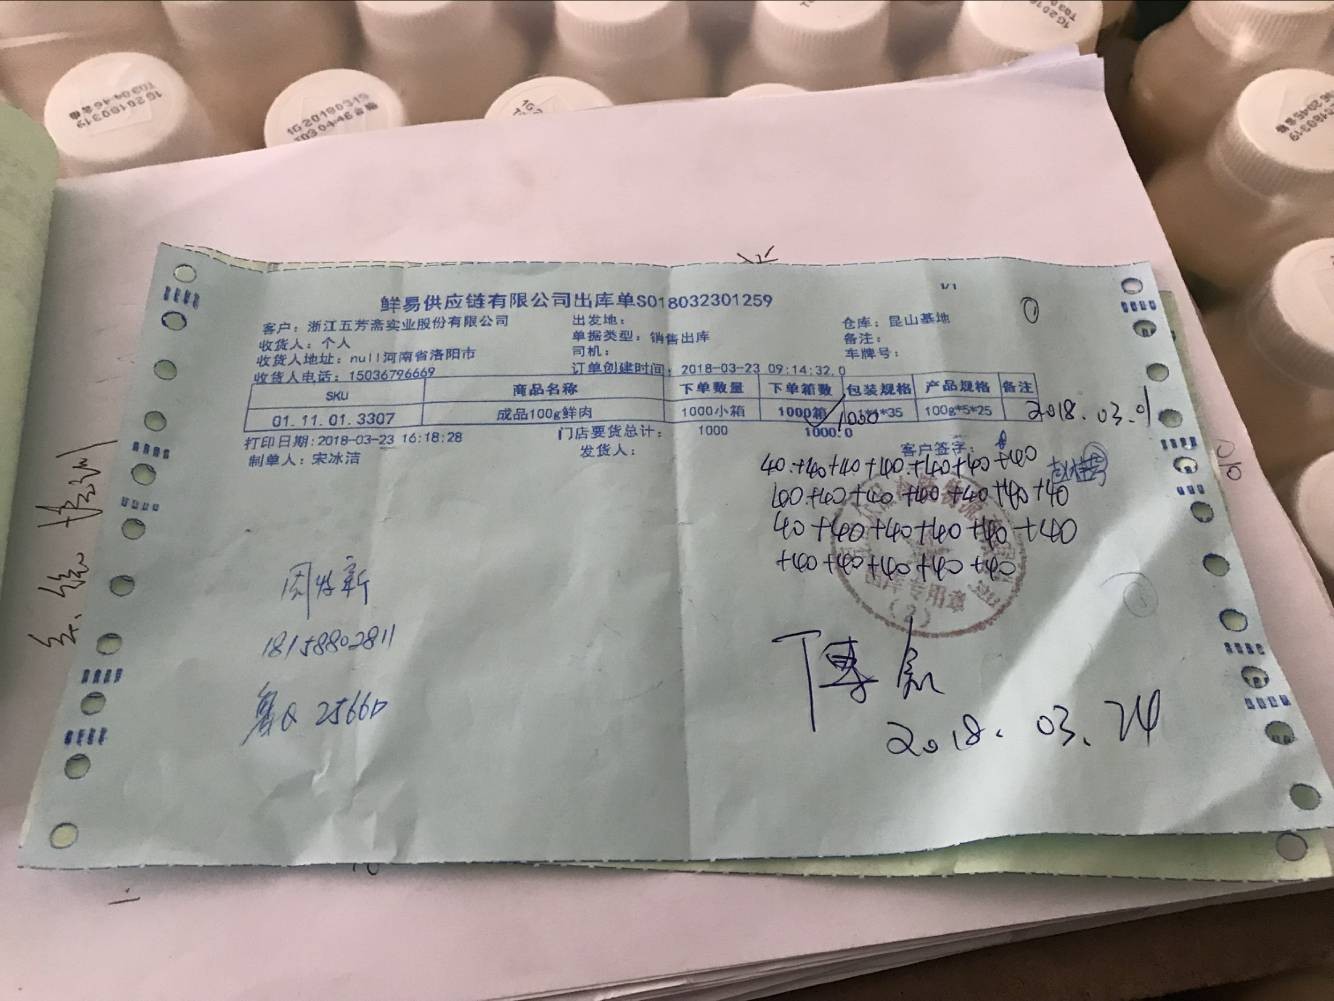 1G20180319
T0304:46
1G20180319
鲜易供应链有限公司出库单S018032301259
1/1
客户: 浙江五芳斋实业股份有限公司
出发地:
仓库: 昆山基地
收货人: 个人
单据类型: 销售出库
备注:
收货人地址: null河南省洛阳市
司机:
车牌号:
收货人电话: 15036796669
订单创建时间: 2018-03-23 09:14:32.0
SKU 商品名称 下单数量 下单箱数 包装规格 产品规格 备注
01.11.01.3307 成品100g鲜肉 1000小箱 1000箱 *35 100g*5*25
1000
2018.03.
打印日期:2018-03-23 16:18:28
门店要货总计: 1000 1000.0
制单人: 宋冰洁
发货人:
客户签字:
40+40+40+40+40+40+40
40+40+40+40+40+40+40
40+40+40+40+40+40
+40+40+40+40+40
专用章
(2)
18158802811
鲁Q 2566D
2018.03.24